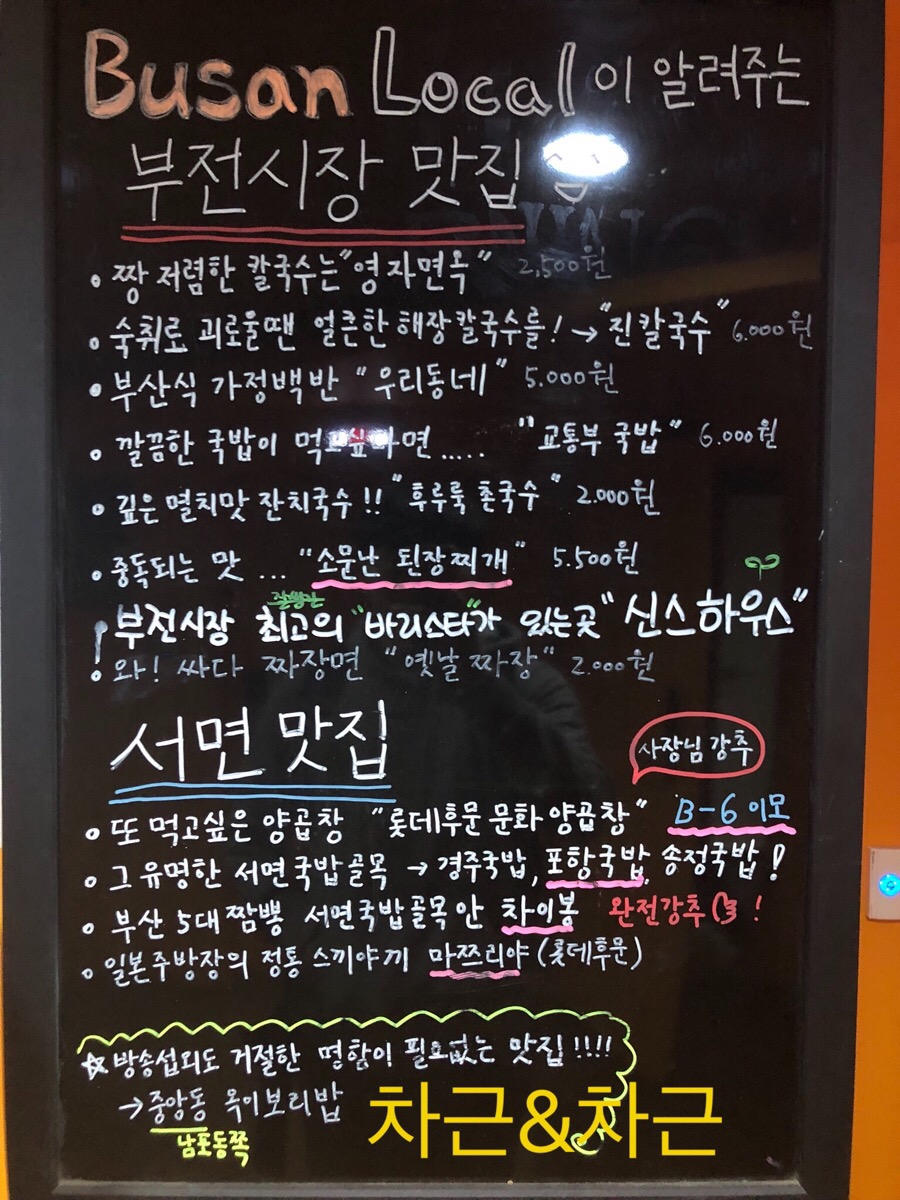 Busan Local이 알려주는
부전시장 맛집
• 짱 저렴한 칼국수는 "영자면옥" 2,500원
• 숙취로 괴로울땐 얼큰한 해장칼국수를! → "진칼국수" 6.000원
• 부산식 가정백반 "우리동네" 5.000원
• 깔끔한 국밥이 먹고싶다면..... "교통부 국밥" 6.000원
• 깊은 멸치맛 잔치국수!! "후루룩 촌국수" 2.000원
• 중독되는 맛 ... "소문난 된장찌개" 5.500원
잘생긴
! 부전시장 최고의 "바리스타"가 있는곳 "신스하우스"
• 와! 싸다 짜장면 "옛날 짜장" 2.000원
서면 맛집
사장님 강추
• 또 먹고싶은 양곱창 "롯데후문 문화 양곱창" B-6 이모
• 그 유명한 서면국밥골목 → 경주국밥, 포항국밥, 송정국밥!
• 부산 5대 짬뽕 서면국밥골목 안 차이봉 완전강추 !
• 일본주방장의 정통 스끼야끼 마쯔리야 (롯데후문)
☆ 방송섭외도 거절한 명함이 필요없는 맛집!!!!
→ 중앙동 옥이보리밥
남포동쪽
차근&차근